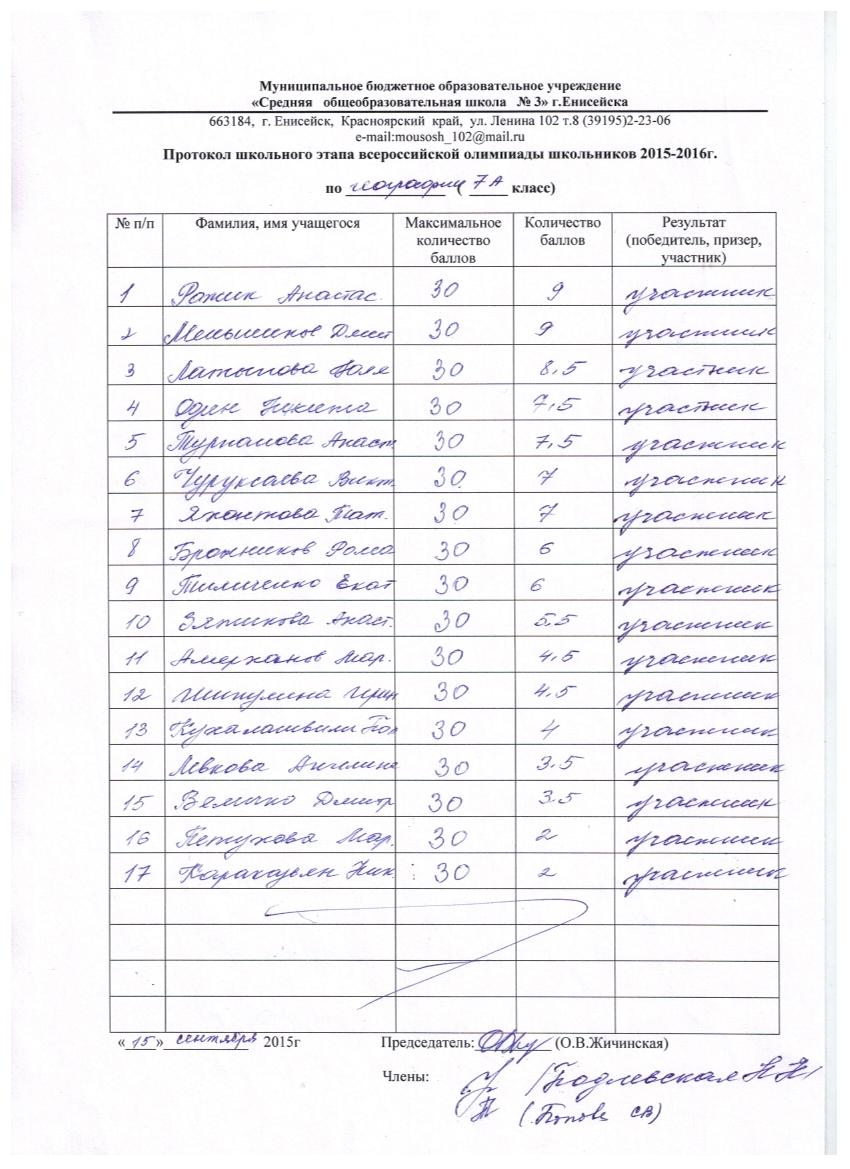 Муниципальное бюджетное образовательное учреждение
«Средняя общеобразовательная школа № 3» г.Енисейска
663184, г. Енисейск, Красноярский край, ул. Ленина 102 т.8 (39195)2-23-06
e-mail:mousosh_102@mail.ru
Протокол школьного этапа всероссийской олимпиады школьников 2015-2016г.
по географии ( 7 А класс)
№ п/п Фамилия, имя учащегося Максимальное количество баллов Количество баллов Результат (победитель, призер, участник)
1 Анастас. 30 9 участник
2 Меньшиков Дмит 30 9 участник
3 Латыпова 30 8,5 участник
4 Один Никита 30 7,5 участник
5 Турпанова Анаст 30 7,5 участник
6 Викт. 30 7 участник
7 Яхонтова Тат. 30 7 участник
8 Бражников Рома 30 6 участник
9 Тимиченко Екат 30 6 участник
10 Зяпикова Анаст. 30 5,5 участник
11 Амерханов Мар. 30 4,5 участник
12 Шипулина Ирин 30 4,5 участник
13 Кухалашвили Пол 30 4 участник
14 Левкова Ангелина 30 3,5 участник
15 Величко Дмитр 30 3.5 участник
16 Петухова Мар. 30 2 участник
17 Ник. 30 2 участник
« 15 » сентября 2015г Председатель: (О.В.Жичинская)
Члены: /Бодлевская Н Н/
(Попова СВ)